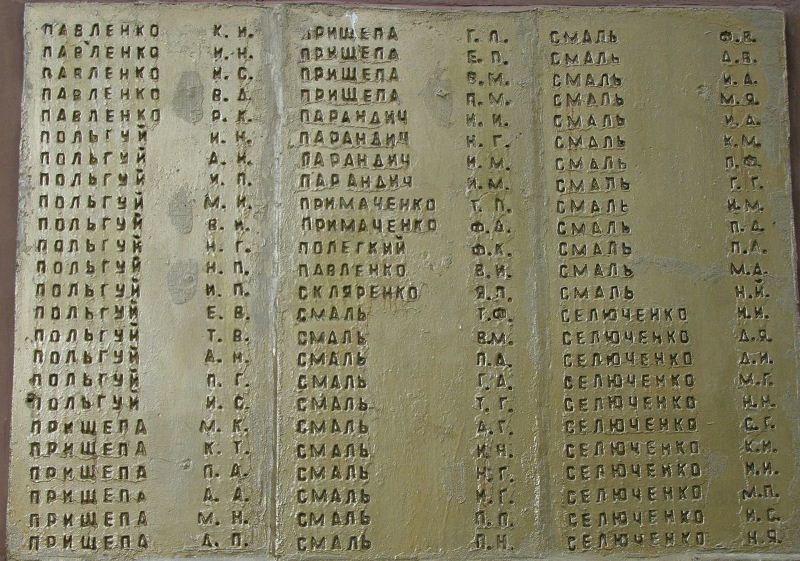 ПАВЛЕНКО К. И.
ПАВЛЕНКО И. Н.
ПАВЛЕНКО И. С.
ПАВЛЕНКО В. Д.
ПАВЛЕНКО Р. К.
ПОЛЬГУЙ И. Н.
ПОЛЬГУЙ А. И.
ПОЛЬГУЙ И. П.
ПОЛЬГУЙ М. И.
ПОЛЬГУЙ В. И.
ПОЛЬГУЙ Н. Г.
ПОЛЬГУЙ Н. П.
ПОЛЬГУЙ И. П.
ПОЛЬГУЙ Е. В.
ПОЛЬГУЙ Т. В.
ПОЛЬГУЙ А. Н.
ПОЛЬГУЙ П. Г.
ПОЛЬГУЙ И. С.
ПРИЩЕПА М. К.
ПРИЩЕПА К. Т.
ПРИЩЕПА П. А.
ПРИЩЕПА А. А.
ПРИЩЕПА М. Н.
ПРИЩЕПА Д. П.
ПРИЩЕПА Г. П.
ПРИЩЕПА Е. П.
ПРИЩЕПА В. М.
ПРИЩЕПА П. М.
ПАРАНДИЧ И. И.
ПАРАНДИЧ Н. Г.
ПАРАНДИЧ И. М.
ПАРАНДИЧ И. М.
ПРИМАЧЕНКО Т. П.
ПРИМАЧЕНКО Ф. Д.
ПОЛЕГКИЙ Ф. К.
ПАВЛЕНКО В. И.
СКЛЯРЕНКО Я. П.
СМАЛЬ Т. Ф.
СМАЛЬ В. М.
СМАЛЬ П. Д.
СМАЛЬ Г. Д.
СМАЛЬ Т. Г.
СМАЛЬ А. Г.
СМАЛЬ И. Я.
СМАЛЬ Н. Г.
СМАЛЬ И. Г.
СМАЛЬ П. П.
СМАЛЬ П. Н.
СМАЛЬ Ф. В.
СМАЛЬ Д. В.
СМАЛЬ И. Д.
СМАЛЬ М. Я.
СМАЛЬ И. Д.
СМАЛЬ К. М.
СМАЛЬ П. Ф.
СМАЛЬ Г. Г.
СМАЛЬ И. М.
СМАЛЬ П. Д.
СМАЛЬ П. А.
СМАЛЬ М. Д.
СМАЛЬ Н. Й.
СЕЛЮЧЕНКО И. И.
СЕЛЮЧЕНКО Д. Я.
СЕЛЮЧЕНКО Д. И.
СЕЛЮЧЕНКО М. Г.
СЕЛЮЧЕНКО Н. Н.
СЕЛЮЧЕНКО С. Г.
СЕЛЮЧЕНКО К. И.
СЕЛЮЧЕНКО И. И.
СЕЛЮЧЕНКО М. П.
СЕЛЮЧЕНКО И. С.
СЕЛЮЧЕНКО Н. Я.